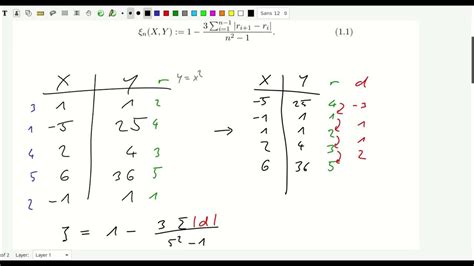 Sans 12
ξₙ(X, Y) := 1 − 3 ∑ⁿ⁻¹ᵢ₌₁ |rᵢ₊₁ − rᵢ| / n² − 1 . (1.1)
X Y r y = x²
3 1 1 2
1 -5 25 4
4 2 4 3
5 6 36 5
2 -1 1 1
→
X Y r d
-5 25 4 -3
-1 1 1 1
1 1 2 1
2 4 3 2
6 36 5
ξ = 1 − 3 Σ|d| / 5² − 1
of 2 Layer: Layer 1